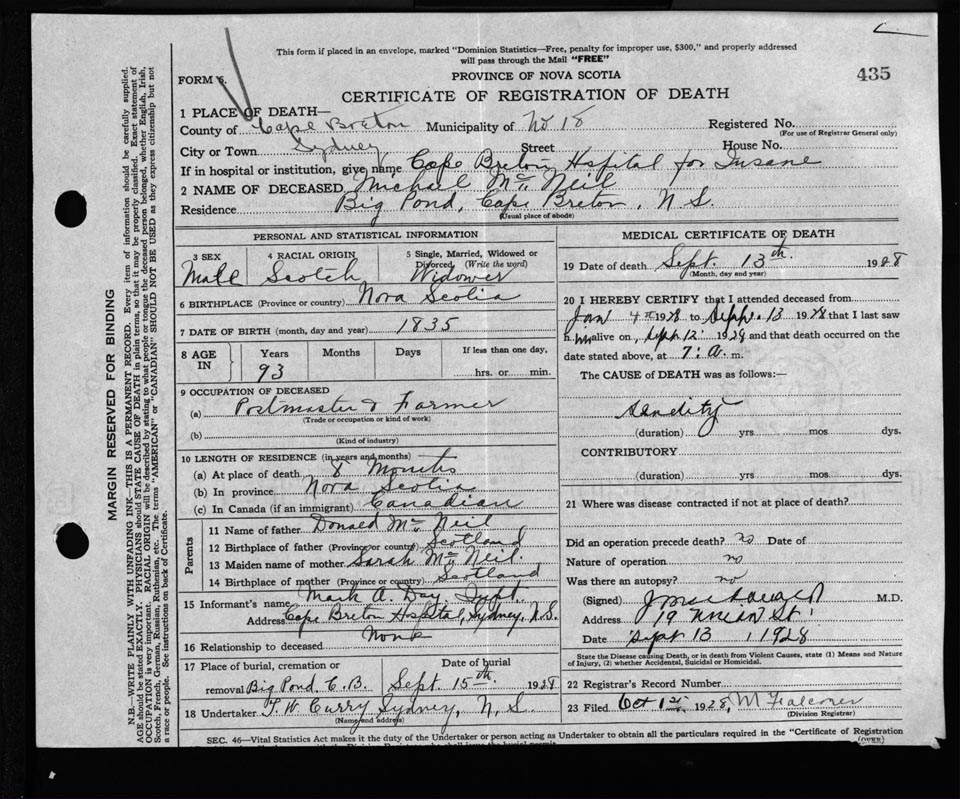 This form if placed in an envelope, marked "Dominion Statistics—Free, penalty for improper use, $300," and properly addressed
will pass through the Mail "FREE"
435
FORM 6.
PROVINCE OF NOVA SCOTIA
CERTIFICATE OF REGISTRATION OF DEATH
1 PLACE OF DEATH—
County of Cape Breton Municipality of No 18 Registered No.
(For use of Registrar General only)
City or Town Sydney Street House No.
If in hospital or institution, give name Cape Breton Hspital for Insane
2 NAME OF DECEASED Michael Mc Neil
Residence Big Pond, Cape Breton, N.S.
(Usual place of abode)
PERSONAL AND STATISTICAL INFORMATION
3 SEX Male
4 RACIAL ORIGIN Scotch
5 Single, Married, Widowed or Divorced (Write the word) Widower
6 BIRTHPLACE (Province or country) Nova Scotia
7 DATE OF BIRTH (month, day and year) 1835
8 AGE IN Years 93 Months Days If less than one day, hrs. or min.
9 OCCUPATION OF DECEASED
(a) Postmaster & Farmer
(Trade or occupation or kind of work)
(b)
(Kind of industry)
10 LENGTH OF RESIDENCE (in years and months)
(a) At place of death 8 Months
(b) In province Nova Scotia
(c) In Canada (if an immigrant) Canadian
Parents
11 Name of father Donald Mc Neil
12 Birthplace of father (Province or country) Scotland
13 Maiden name of mother Sarah Mc Neil
14 Birthplace of mother (Province or country) Scotland
15 Informant's name Mark A. Day, Supt.
Address Cape Breton Hspital, Sydney, N.S.
16 Relationship to deceased None
17 Place of burial, cremation or removal Big Pond. C.B.
Date of burial Sept. 15th 1928
18 Undertaker T. W. Curry Sydney, N.S.
(Name and address)
MEDICAL CERTIFICATE OF DEATH
19 Date of death Sept. 13th. 1928
(Month, day and year)
20 I HEREBY CERTIFY that I attended deceased from
Jan 4th 1928 to Sept. 13 1928 that I last saw
him alive on Sept 12 1928 and that death occurred on the
date stated above, at 7: a. m.
The CAUSE of DEATH was as follows:—
(duration) yrs mos dys.
CONTRIBUTORY
(duration) yrs mos dys.
21 Where was disease contracted if not at place of death?
Did an operation precede death? no Date of
Nature of operation no
Was there an autopsy? no
(Signed) M.D.
Address 79 St
Date Sept 13, 1928
State the Disease causing Death, or in death from Violent Causes, state (1) Means and Nature
of Injury, (2) whether Accidental, Suicidal or Homicidal.
22 Registrar's Record Number
23 Filed Oct 1st 1928, M Falconer
(Division Registrar)
SEC. 46—Vital Statistics Act makes it the duty of the Undertaker or person acting as Undertaker to obtain all the particulars required in the "Certificate of Registration
(OVER)
MARGIN RESERVED FOR BINDING
N.B.—WRITE PLAINLY WITH UNFADING INK—THIS IS A PERMANENT RECORD. Every item of information should be carefully supplied.
AGE should be stated EXACTLY. PHYSICIANS should STATE CAUSE OF DEATH in plain terms, so that it may be properly classified. Exact statement of
OCCUPATION is very important. RACIAL ORIGIN will be described by stating to what people or tongue the deceased person belonged, whether English, Irish,
Scotch, French, German, Russian, Ruthenian, etc. The terms "AMERICAN" or "CANADIAN" SHOULD NOT BE USED as they express citizenship but not
a race or people. See instructions on back of Certificate.